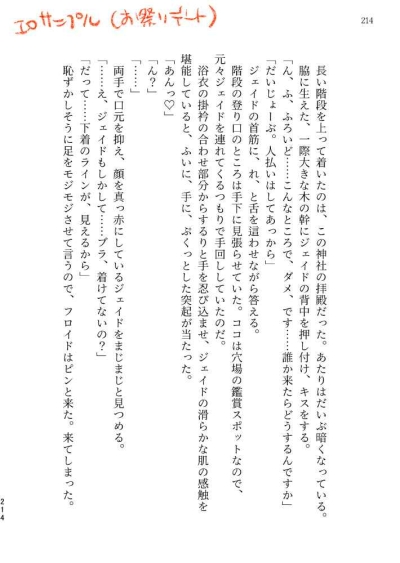 エロサンプル(お祭りデート)
214
長い階段を上って着いたのは、この神社の拝殿だった。あたりはだいぶ暗くなっている。
脇に生えた、一際大きな木の幹にジェイドの背中を押し付け、キスをする。
「ん、ふ、ふろいど……こんなところで、ダメ、です……誰か来たらどうするんですか」
「だいじょーぶ。人払いはしてあっから」
ジェイドの首筋に、れ、と舌を這わせながら答える。
階段の登り口のところは手下に見張らせていた。ココは穴場の鑑賞スポットなので、
元々ジェイドを連れてくるつもりで手回ししていたのだ。
浴衣の掛衿の合わせ部分からするりと手を忍び込ませ、ジェイドの滑らかな肌の感触を
堪能していると、ふいに、手に、ぷくっとした突起が当たった。
「あんっ♡」
「ん?」
「……」
両手で口元を抑え、顔を真っ赤にしているジェイドをまじまじと見つめる。
「……え、ジェイドもしかして……ブラ、着けてないの?」
「だって……下着のラインが、見えるから」
恥ずかしそうに足をモジモジさせて言うので、フロイドはピンと来た。来てしまった。
214